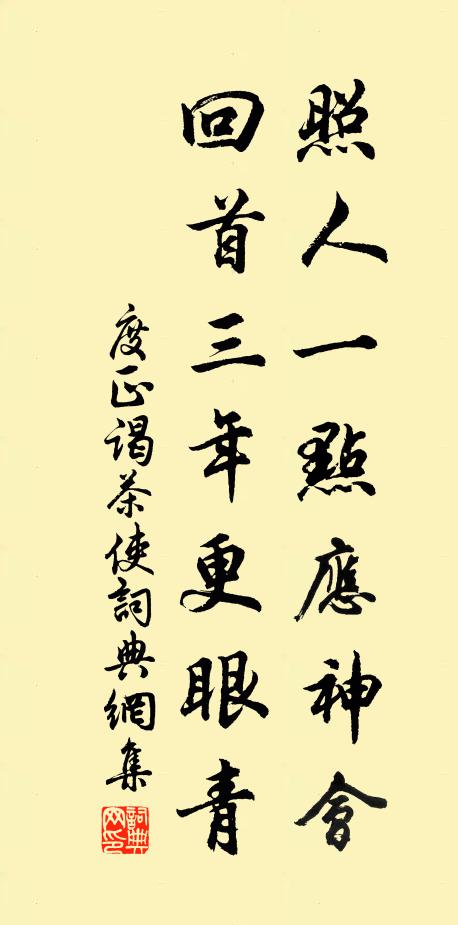 照人一點應神會
回首三年更眼青
度正謁茶使詞典網集
詞典網印